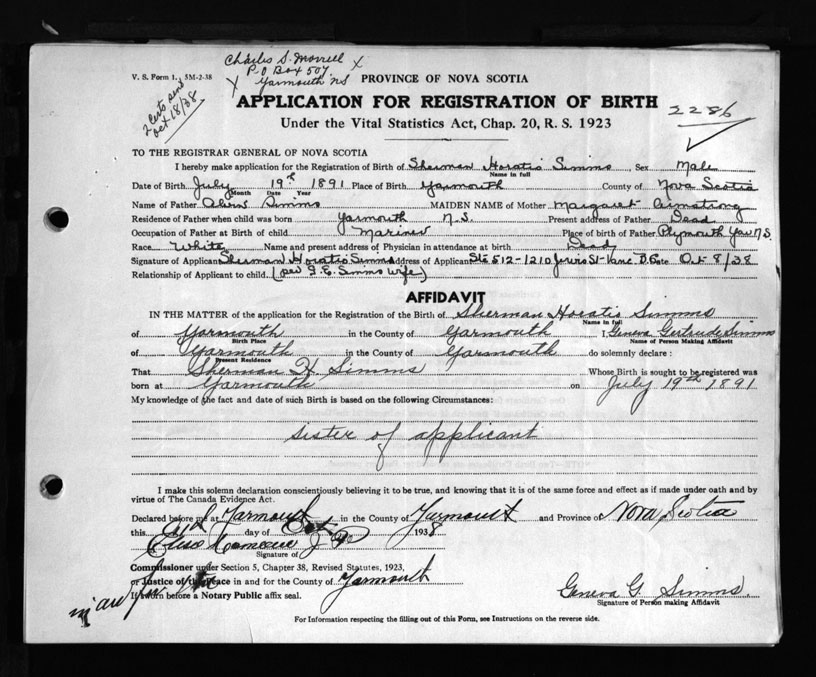 V. S. Form 1. 5M-2-38
Charles S. Morrell X
P.O Box 507
X Yarmouth NS
2 Certs sent
Oct 18/38
PROVINCE OF NOVA SCOTIA
APPLICATION FOR REGISTRATION OF BIRTH
2286
Under the Vital Statistics Act, Chap. 20, R. S. 1923
TO THE REGISTRAR GENERAL OF NOVA SCOTIA
I hereby make application for the Registration of Birth of Sherman Horatio Simms Sex Male
Name in full
Date of Birth July 19th 1891 Place of Birth Yarmouth County of Nova Scotia
Month Date Year
Name of Father Simms MAIDEN NAME of Mother Margaret Armstrong
Residence of Father when child was born Yarmouth N.S. Present address of Father Dead
Occupation of Father at Birth of child Mariner Place of birth of Father Plymouth Yar N.S.
Race White Name and present address of Physician in attendance at birth Dead
Signature of Applicant Sherman Horatio Simms Address of Applicant Ste 512-1210 Jervis St- Vanc. B.C. Date Oct 8/38
Relationship of Applicant to child (per G.E. Simms Wife)
AFFIDAVIT
IN THE MATTER of the application for the Registration of the Birth of Sherman Horatio Simms
Name in full
of Yarmouth in the County of Yarmouth I, Geneva Gertrude Simms
Birth Place Name of Person Making Affidavit
of Yarmouth in the County of Yarmouth do solemnly declare :
Present Residence
That Sherman H. Simms Whose Birth is sought to be registered was
born at Yarmouth on July 19th 1891
My knowledge of the fact and date of such Birth is based on the following Circumstances:
sister of applicant
I make this solemn declaration conscientiously believing it to be true, and knowing that it is of the same force and effect as if made under oath and by
virtue of The Canada Evidence Act.
Declared before me at Yarmouth in the County of Yarmouth and Province of Nova Scotia
this day of Oct. 1938
J P
Signature of
Commissioner under Section 5, Chapter 38, Revised Statutes, 1923,
or Justice of the Peace in and for the County of Yarmouth
If sworn before a Notary Public affix seal.
Geneva G. Simms
Signature of Person making Affidavit
For Information respecting the filling out of this Form, see Instructions on the reverse side.